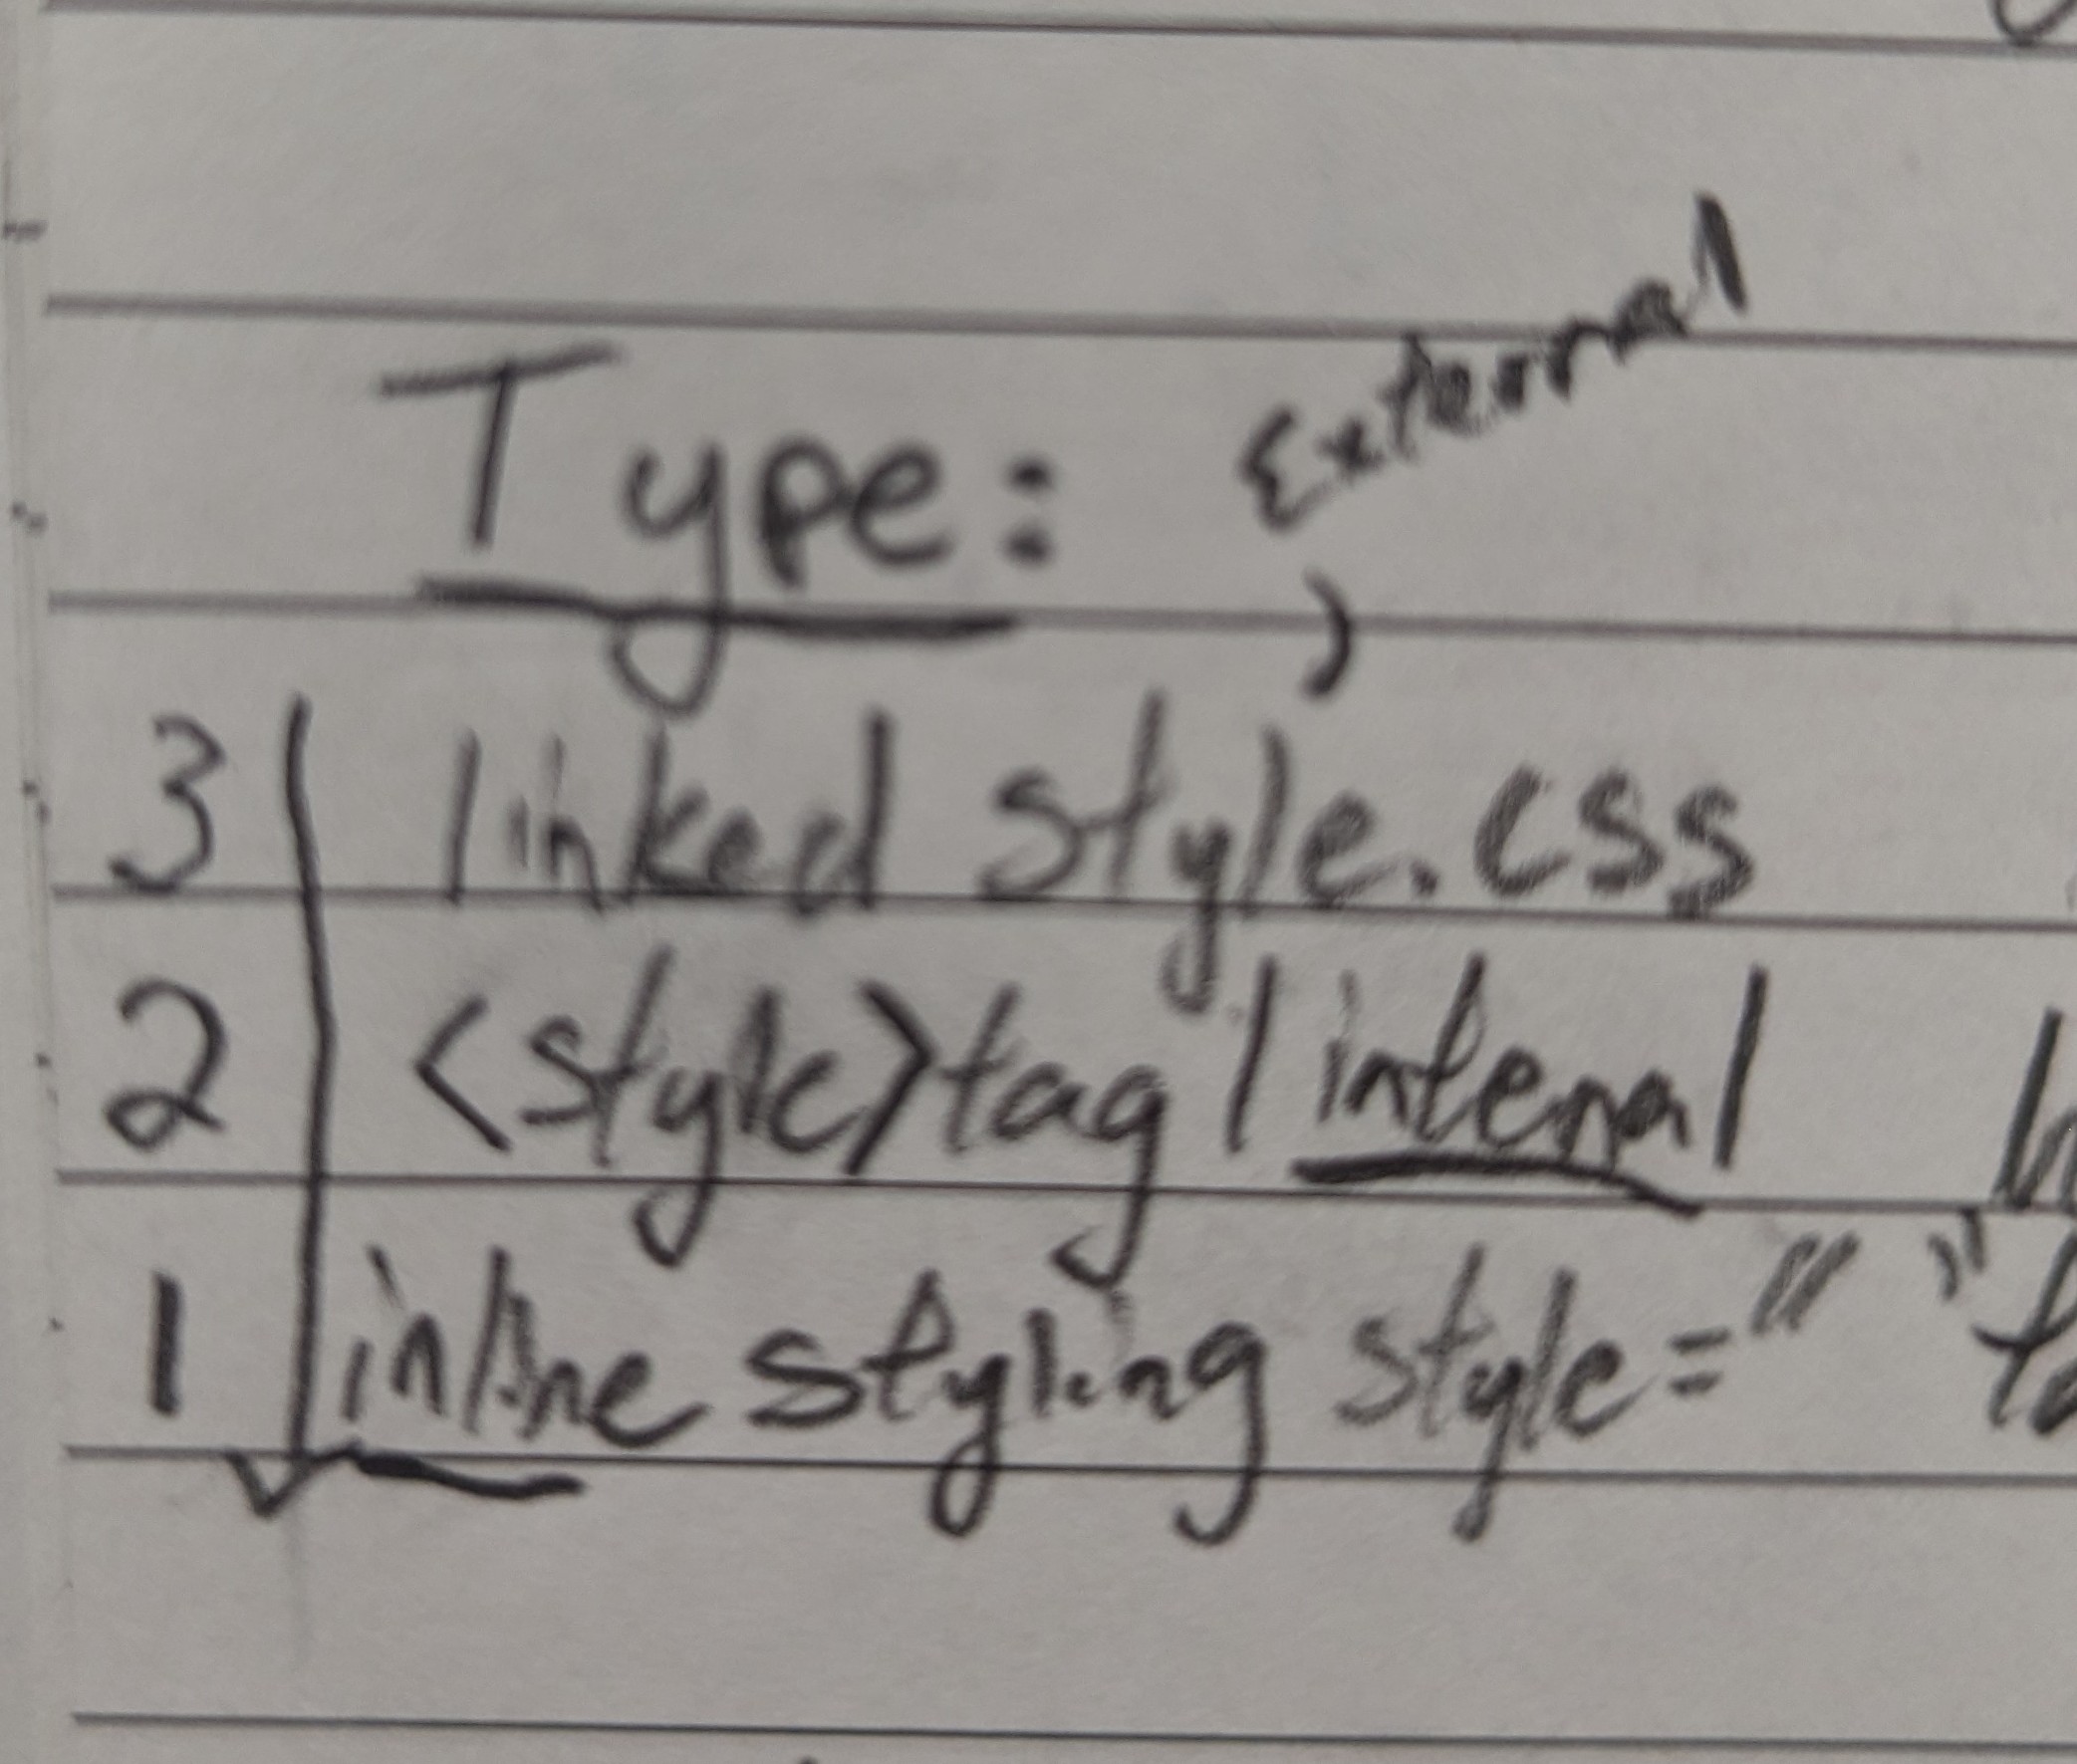 External
Type:
3 linked style.css
2 <style>tag | internal
1 inline styling style=" "